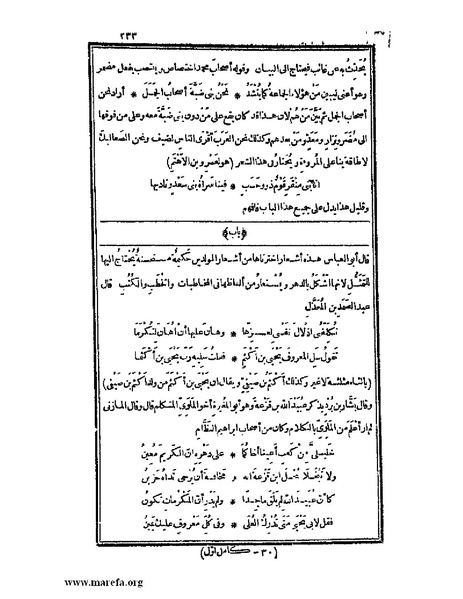 ٢٣٣
يُحَدِّثُ به عن غائب فيحتاج الى البيان وقوله أصحابَ محمد اختصاص وينتصب بفعل مضمر
وهو أعنى ليبين من هؤلاء الجماعة كما يُنْشَدُ * نحن بنى ضبة أصحابُ الجمل * أراد نحن
أصحاب الجمل ثم بَيَّنَ مَنْ هُمْ لان هذا قد كان يقع على مَنْ دون بنى ضبة معه وعلى من فوقها
الى مُضَر ونِزار ومَعَدّ ومن بعدهم وكذلك نحن العربَ أقرى الناس لضيف ونحن الصعاليكَ
لا طاقة بنا على المروءة ويختار فى هذا الشعر (هو لعمرو بن الأهتم)
انا بنى مِنْقَرٍ قومٌ ذوو حَسَب * فينا سَراةُ بنى سعدٍ وناديها
وقليل هذا يدل على جميع هذا الباب فافهم
﴿باب﴾
قال أبو العباس هذه أشعار اخترناها من أشعار المولدين حكيمة مستحسنة يُحتاج اليها
للتمثُّل لانها أشكلُ بالدهر ويُستعار من ألفاظها فى المخاطبات والخُطَب والكُتُب قال
عبد الصمد بن المُعَذَّل
تكلفنى اذلال نفسى لعزها * وهان عليها أن أهان لتكرما
تقول سَلِ المعروفَ يحيى بن أكثم * فقلت سليه ربَّ يحيى بن أكثما
(بالثاء مثلثة لا غير وكذلك أكثم بن صيفى ويقال ان يحيى بن أكثم من ولد أكثم بن صيفى)
وقال بشار بن برد يذكر عبيد الله بن قزعة وهو أبو المغيرة أخو الملوى المتكلم قال وقال المازنى
لم أر أعلم من الملوى بالكلام وكان من أصحاب ابراهيم النظَّام
خليلىّ من كعبٍ أعينا أخاكما * على دهره ان الكريم مُعين
ولا تبخلا بُخلَ ابن قزعة انه * مخافةَ أن يُرجى نداه حزين
كأن عبيد الله لم يلق ماجدا * ولم يدر أن المكرمات تكون
فقل لابى يحيى متى تدرك العلى * وفى كل معروف عليك يمين
(٣٠ - كامل اول)
www.marefa.org